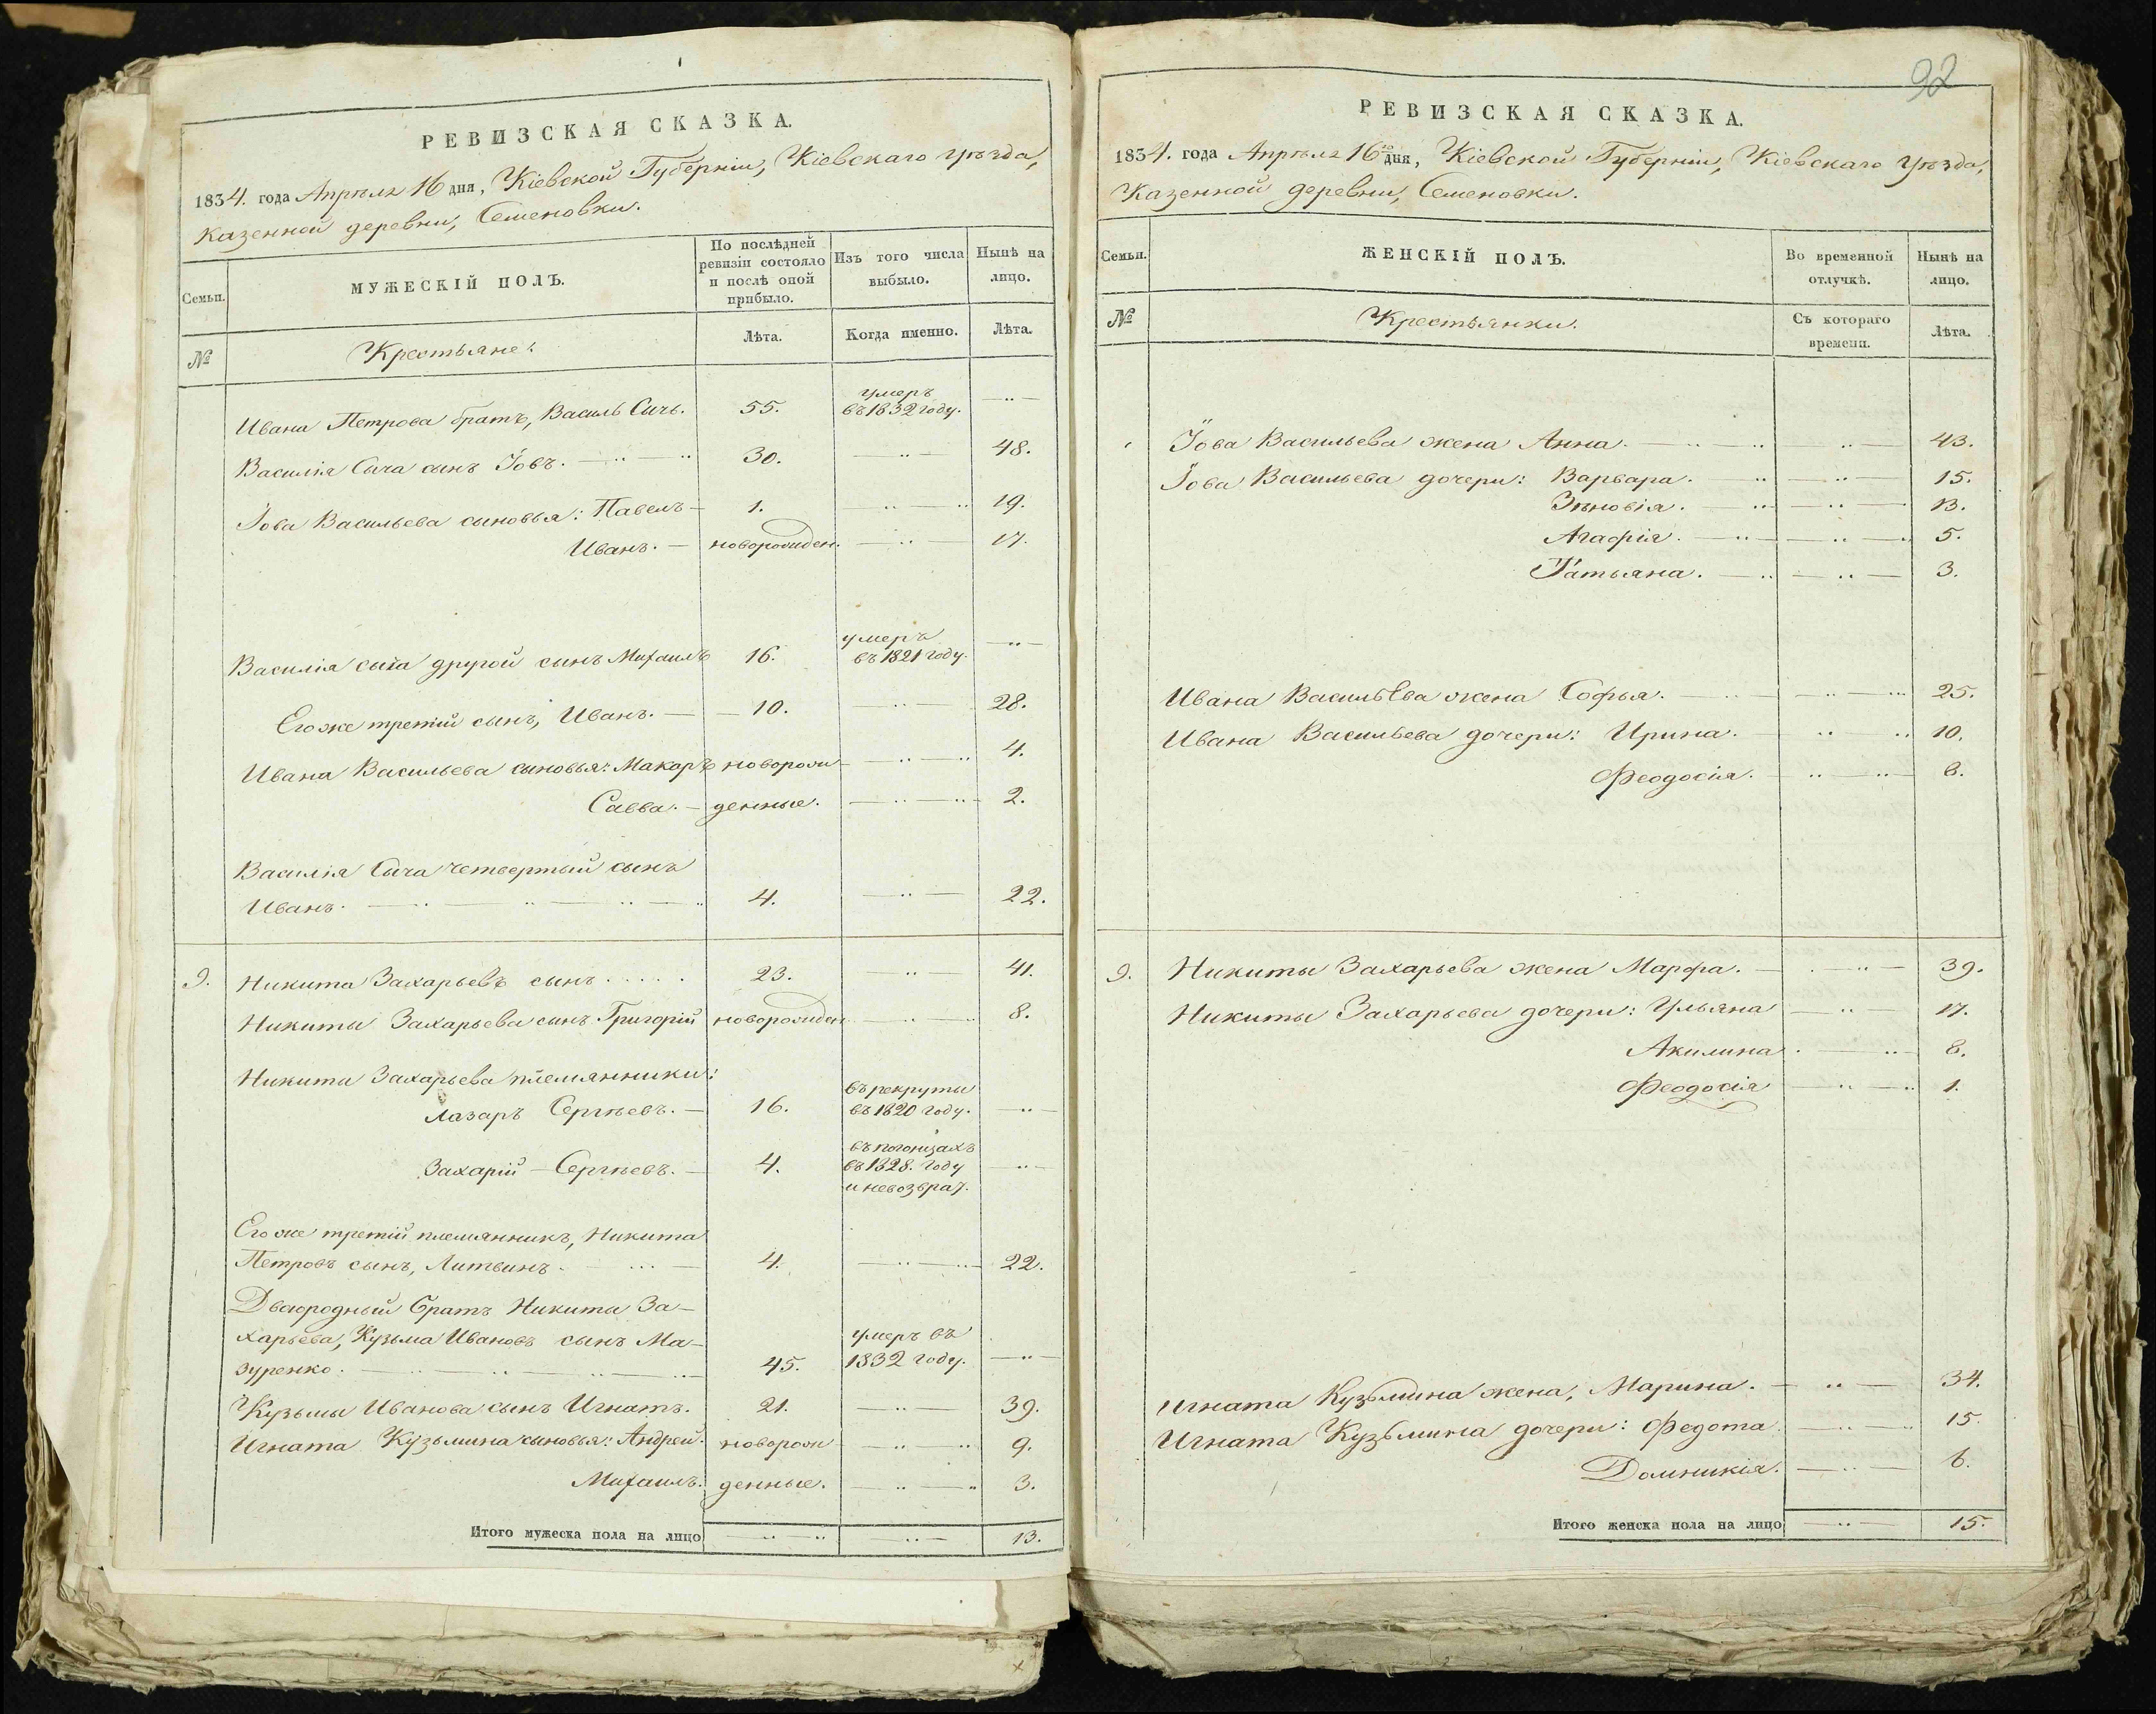 92
РЕВИЗСКАЯ СКАЗКА.
1834. года Апрѣля 16 дня, Кіевской Губерніи, Кіевскаго уѣзда,
Казенной деревни, Семеновки.
Семьи.
МУЖЕСКІЙ ПОЛЪ.
По послѣдней ревизіи состояло и послѣ оной прибыло.
Изъ того числа выбыло.
Нынѣ на лицо.
№
Крестьяне:
Лѣта.
Когда именно.
Лѣта.
Ивана Петрова братъ, Василь Сичь. 55. умеръ въ 1832 году.
Василія Сича сынъ Іовъ. 30. 48.
Іова Васильева сыновья: Павелъ 1. 19.
Иванъ. новорожден. 17.
Василія сича другой сынъ Михаилъ 16. умеръ въ 1821 году.
Его же третій сынъ, Иванъ. 10. 28.
Ивана Васильева сыновья: Макаръ новорож 4.
Савва. денные. 2.
Василія Сича четвертый сынъ
Иванъ. 4. 22.
9. Никита Захарьевъ сынъ 23. 41.
Никиты Захарьева сынъ Григорій новорожден 8.
Никиты Захарьева племянники:
Лазаръ Сергѣевъ. 16. въ рекруты въ 1820 году.
Захарій Сергѣевъ. 4. въ погонцахъ въ 1828. году и невозврат.
Его же третій племянникъ, Никита
Петровъ сынъ, Литвинъ. 4. 22.
Двоюродный братъ Никиты За-
харьева, Кузьма Ивановъ сынъ Ма-
зуренко. 45. умеръ въ 1832 году.
Кузьмы Иванова сынъ Игнатъ. 21. 39.
Игната Кузьмина сыновья: Андрей новорож 9.
Михаилъ. денные. 3.
Итого мужеска пола на лицо 13.
РЕВИЗСКАЯ СКАЗКА.
1834. года Апрѣля 16го дня, Кіевской Губерніи, Кіевскаго уѣзда,
Казенной деревни, Семеновки.
Семьи.
ЖЕНСКІЙ ПОЛЪ.
Во временной отлучкѣ.
Нынѣ на лицо.
№
Крестьянки.
Съ котораго времени.
Лѣта.
Іова Васильева жена Анна. 43.
Іова Васильева дочери: Варвара. 15.
Зѣновія. 13.
Агафія. 5.
Татьяна. 3.
Ивана Васильева жена Софья. 25.
Ивана Васильева дочери: Ирина. 10.
Феодосія. 8.
9. Никиты Захарьева жена Марфа. 39.
Никиты Захарьева дочери: Ульяна 17.
Акилина. 8.
Феодосія 1.
Игната Кузьмина жена, Марина. 34.
Игната Кузьмина дочери: Федота 15.
Домникія. 6.
Итого женска пола на лицо 15.